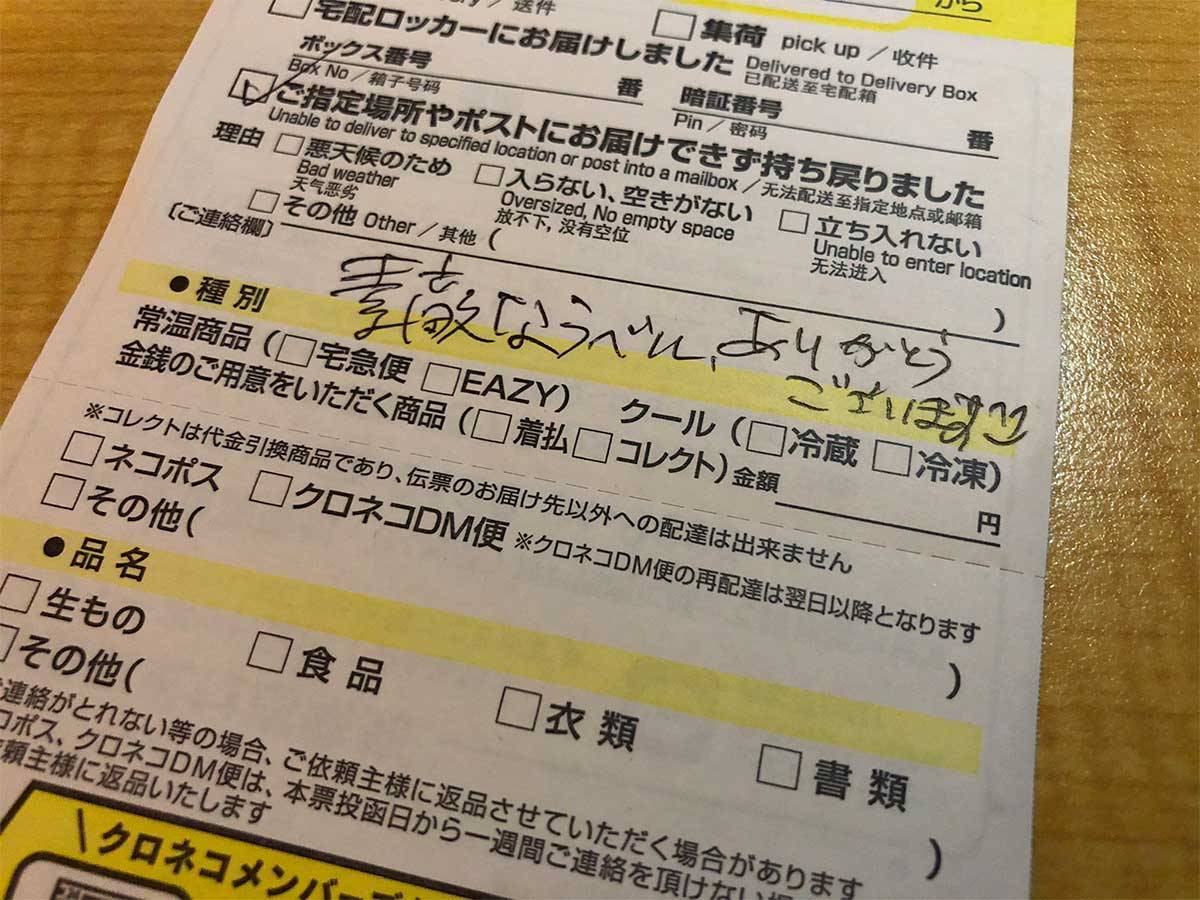 送件
から
□集荷 pick up / 收件
宅配ロッカーにお届けしました Delivered to Delivery Box
已配送至宅配箱
ボックス番号
Box No / 箱子号码
番
暗証番号
Pin / 密码
番
ご指定場所やポストにお届けできず持ち戻りました
Unable to deliver to specified location or post into a mailbox / 无法配送至指定地点或邮箱
理由 □悪天候のため
Bad weather
天气恶劣
□入らない、空きがない
Oversized, No empty space
放不下, 没有空位
□立ち入れない
Unable to enter location
无法进入
□その他 Other / 其他 ( )
〔ご連絡欄〕
素敵なラベル、ありがとう
ございます
●種別
常温商品 (□宅急便 □EAZY) クール (□冷蔵 □冷凍)
金銭のご用意をいただく商品 (□着払 □コレクト) 金額 円
※コレクトは代金引換商品であり、伝票のお届け先以外への配達は出来ません
□ネコポス □クロネコDM便 ※クロネコDM便の再配達は翌日以降となります
□その他( )
●品名
□生もの □食品 □衣類 □書類
□その他( )
連絡がとれない等の場合、ご依頼主様に返品させていただく場合があります
コポス、クロネコDM便は、本票投函日から一週間ご連絡を頂けない場
依頼主様に返品いたします
\クロネコメンバーズ